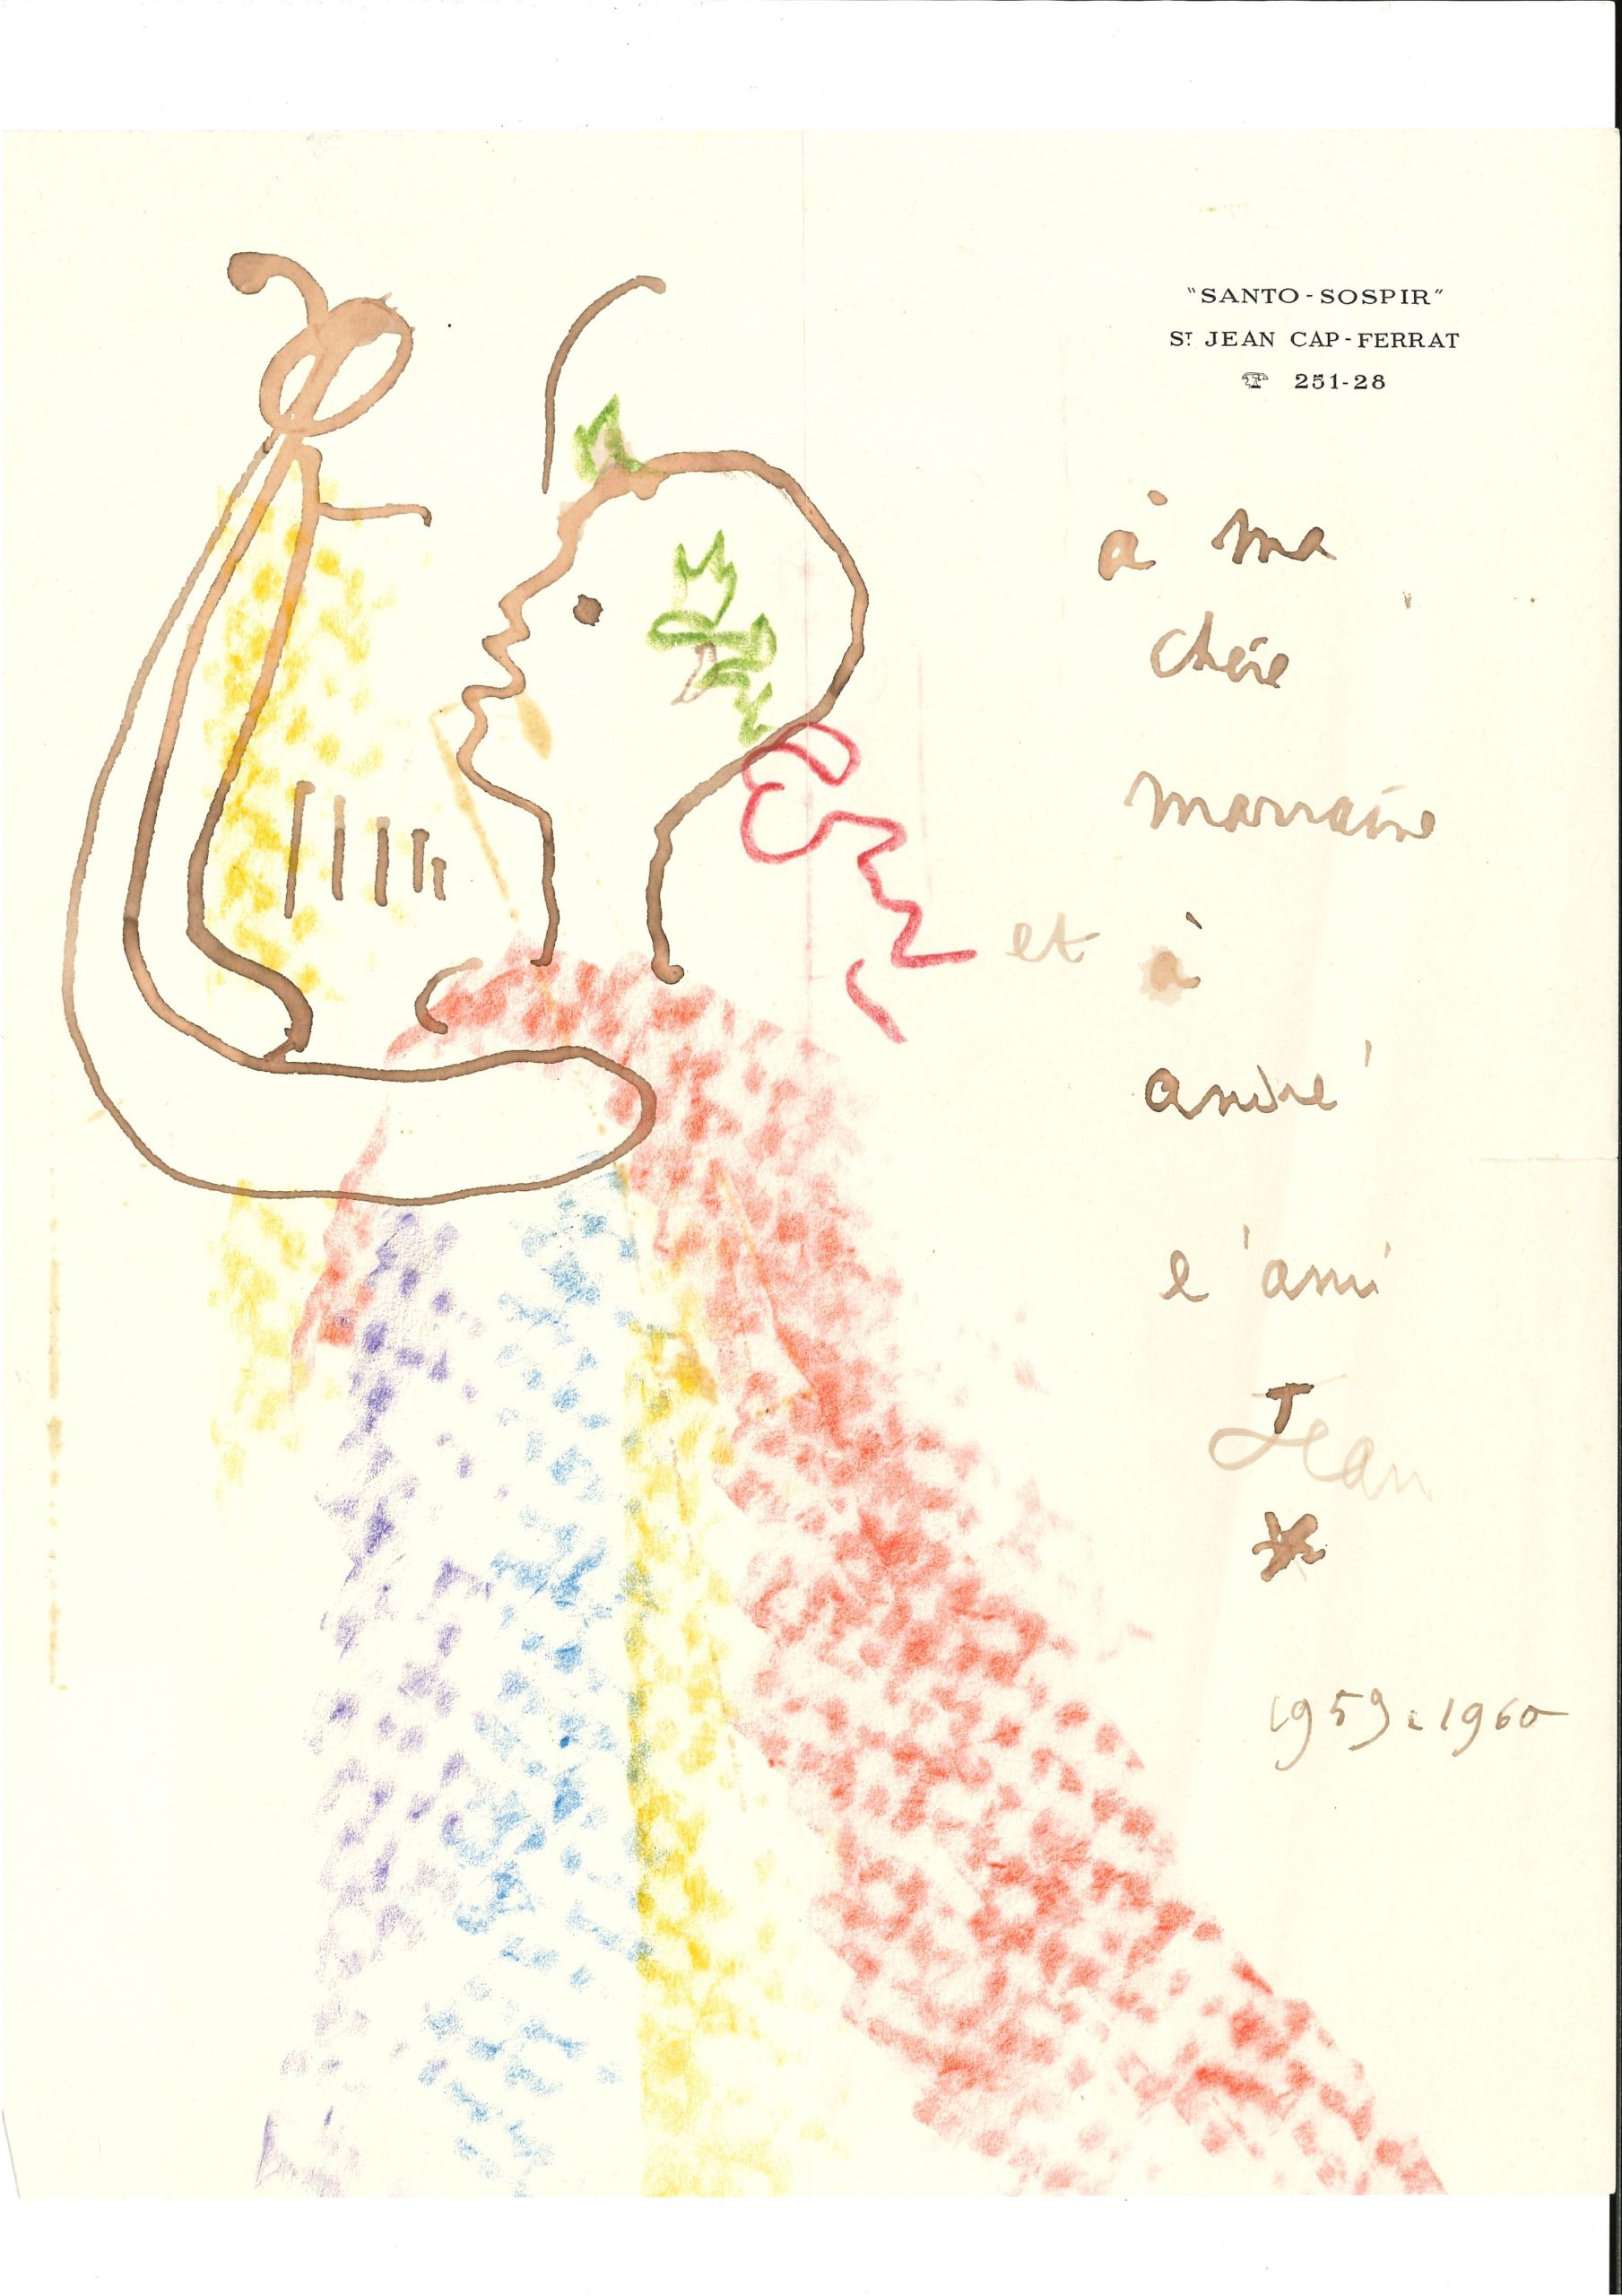 "SANTO-SOSPIR"
ST JEAN CAP-FERRAT
☎ 251-28
à ma
chère
marraine
et à
andré
l'ami
Jean
*
1959.1960